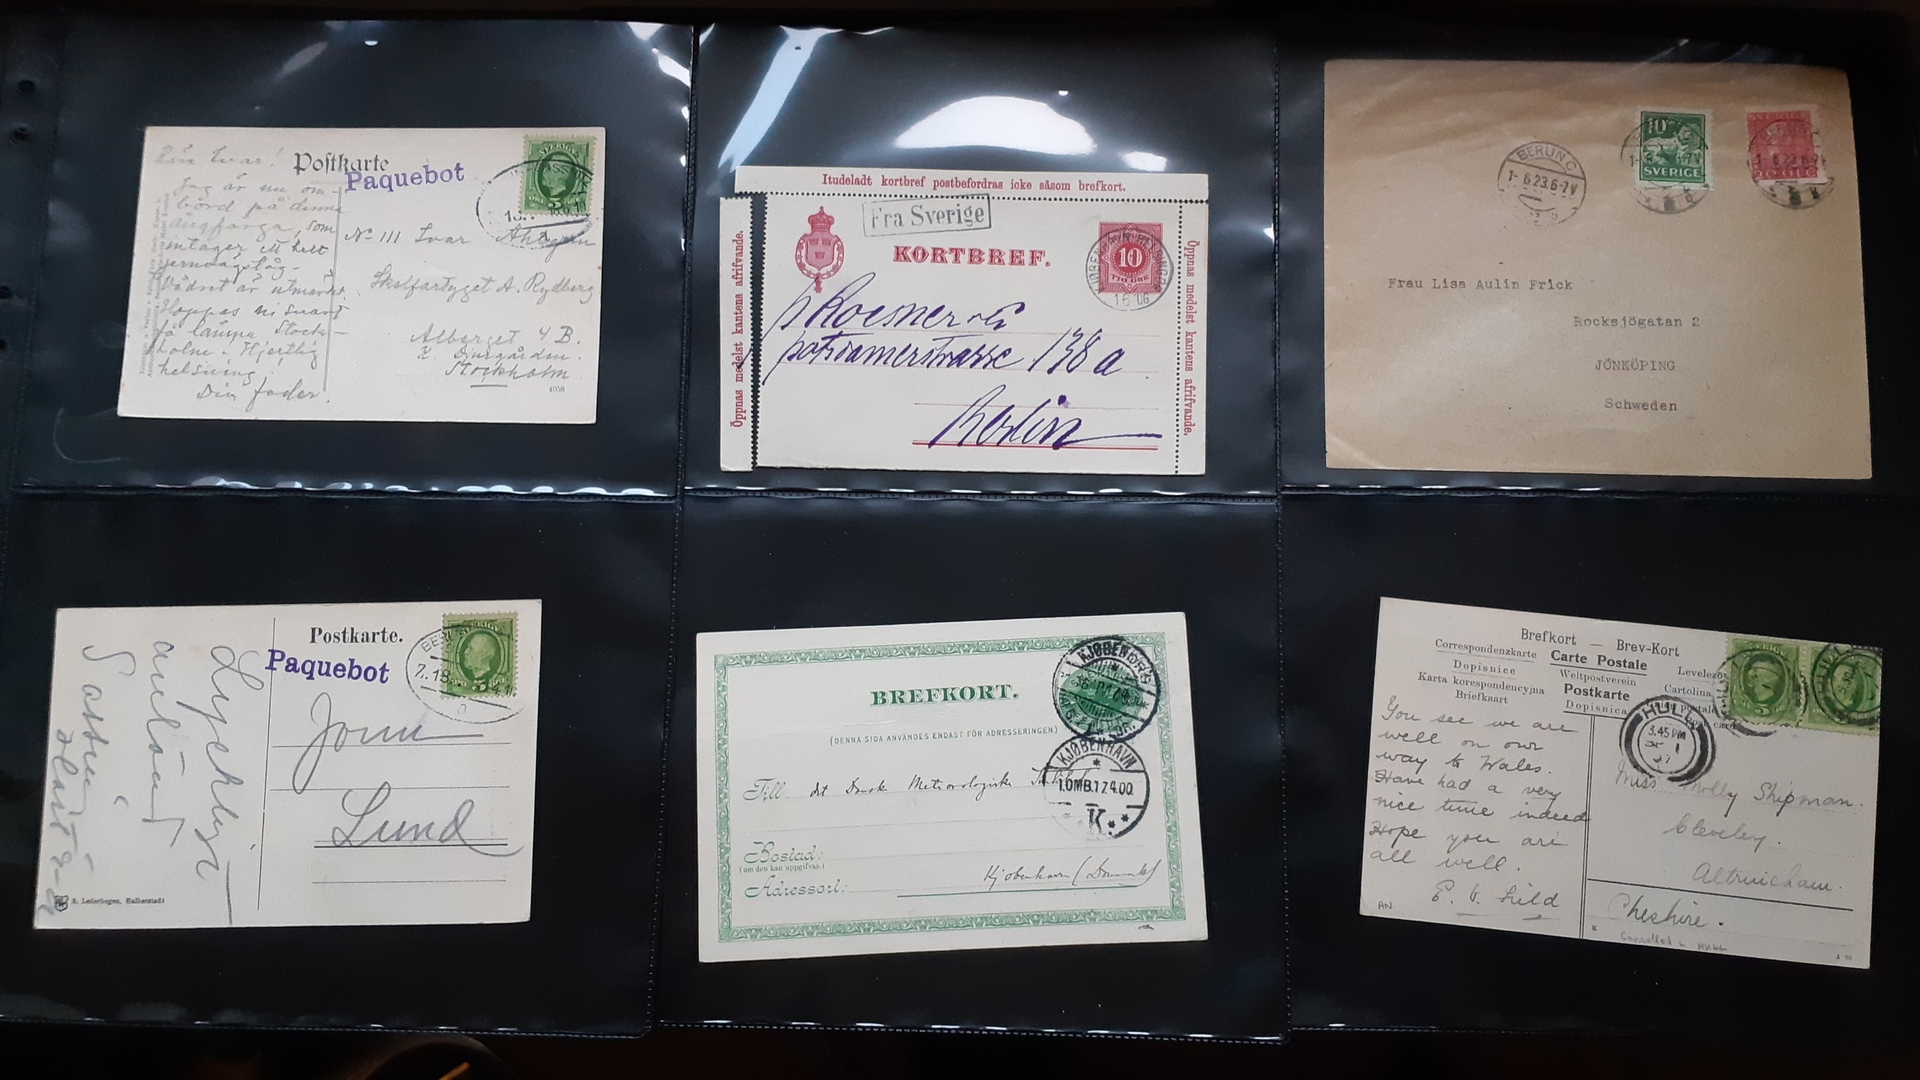 Postkarte
Paquebot
Käre Ivar!
Jag är nu om-
bord på denna
ångfärga, som
intager ett helt
jernvägståg.
Vädret är utmärkt.
Hoppas ni snart
få lämna Stock-
holm. Hjertlig
helsning.
Din fader.
No 111 Ivar
Skolfartyget A. Rydberg
Alberget 4 B.
K. Djurgården.
Stockholm
4058
SVERIGE
Itudeladt kortbref postbefordras icke såsom brefkort.
Fra Sverige
KORTBREF.
10
TIO ÖRE
Öppnas medelst kantens afrifvande.
Öppnas medelst kantens afrifvande.
Roesner
potsdamerstrasse 138 a
Berlin
BERLIN C
1-6 23. 6-7V
10
SVERIGE
SVERIGE
Frau Lisa Aulin Frick
Rocksjögatan 2
JÖNKÖPING
Schweden
Postkarte.
Paquebot
SVERIGE
Lund
R. Lederbogen, Halberstadt
BREFKORT.
(DENNA SIDA ANVÄNDES ENDAST FÖR ADRESSERINGEN.)
KJØBENHAVN
1.OMB.17.4.00.
K.
Till det Dansk Meteorologiske
Bostad:
(om den kan uppgifvas.)
Adressort: Kjöbenhavn (Danmark)
Brefkort — Brev-Kort
Correspondenzkarte Carte Postale
Dopisnice Weltpostverein
Karta korespondencyjna Postkarte Cartolina postale
Briefkaart Dopisnica Post card
HULL
3.45 PM
You see we are
well on our
way to Wales.
Have had a very
nice time indeed
Hope you are
all well.
Miss Molly Shipman.
Cleveley.
Altrincham.
Cheshire.
AN.
Cancelled in HULL